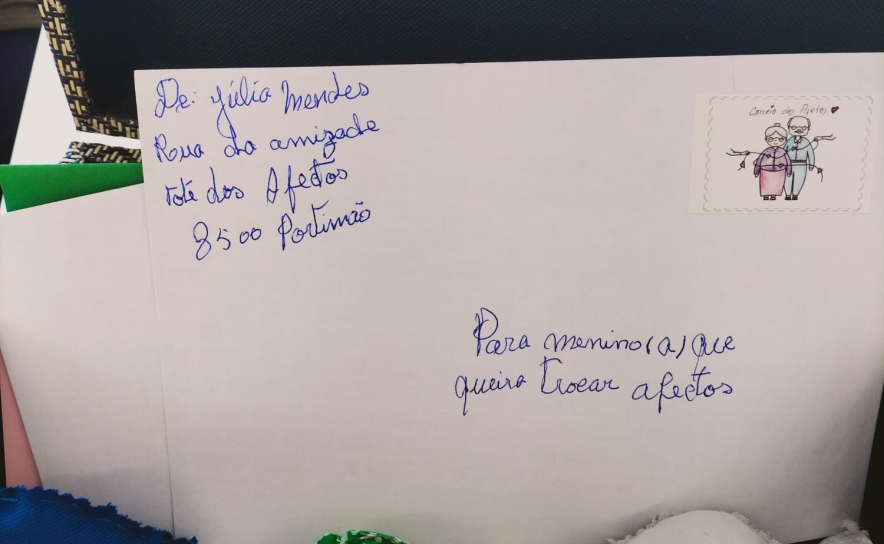 De: Júlia Mendes
Rua da amizade
Lote dos Afectos
8500 Portimão
Correio dos Afetos
Para menino(a) que
queira trocar afectos